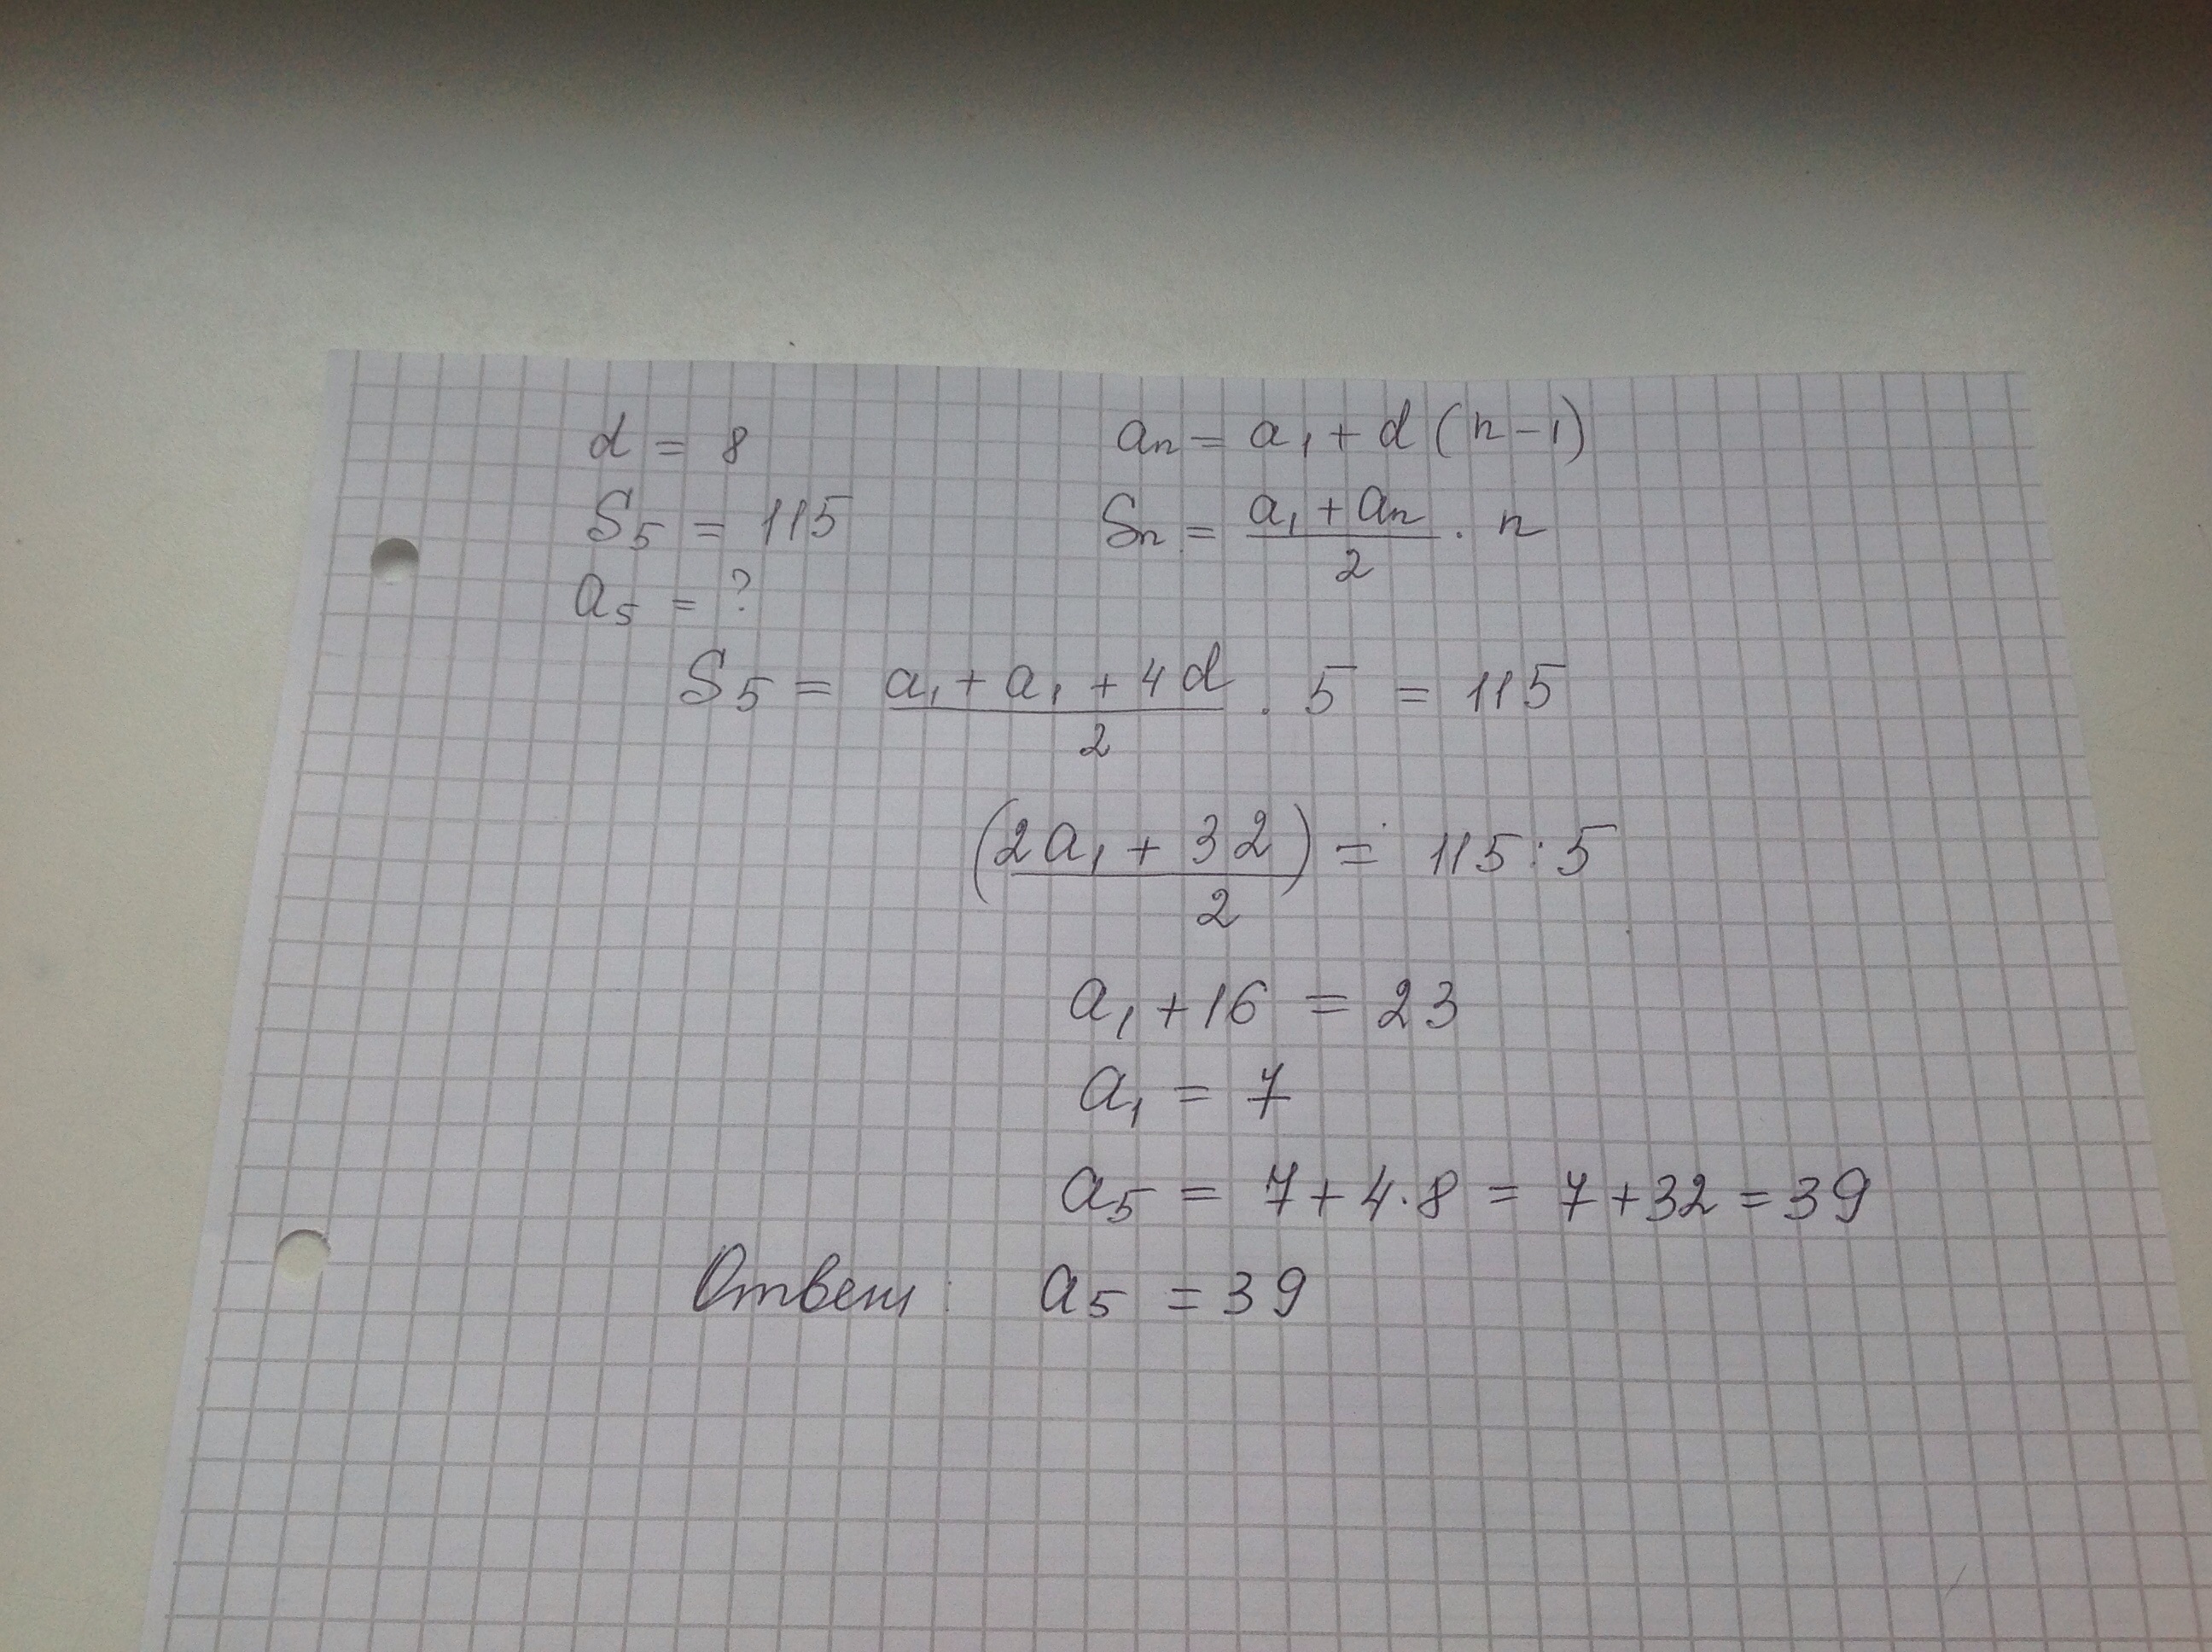 d = 8
aₙ = a₁ + d (n-1)
S₅ = 115
Sₙ = (a₁ + aₙ)/2 · n
a₅ = ?
S₅ = (a₁ + a₁ + 4d)/2 · 5 = 115
((2a₁ + 32)/2) = 115 : 5
a₁ + 16 = 23
a₁ = 7
a₅ = 7 + 4 · 8 = 7 + 32 = 39
Ответ: a₅ = 39